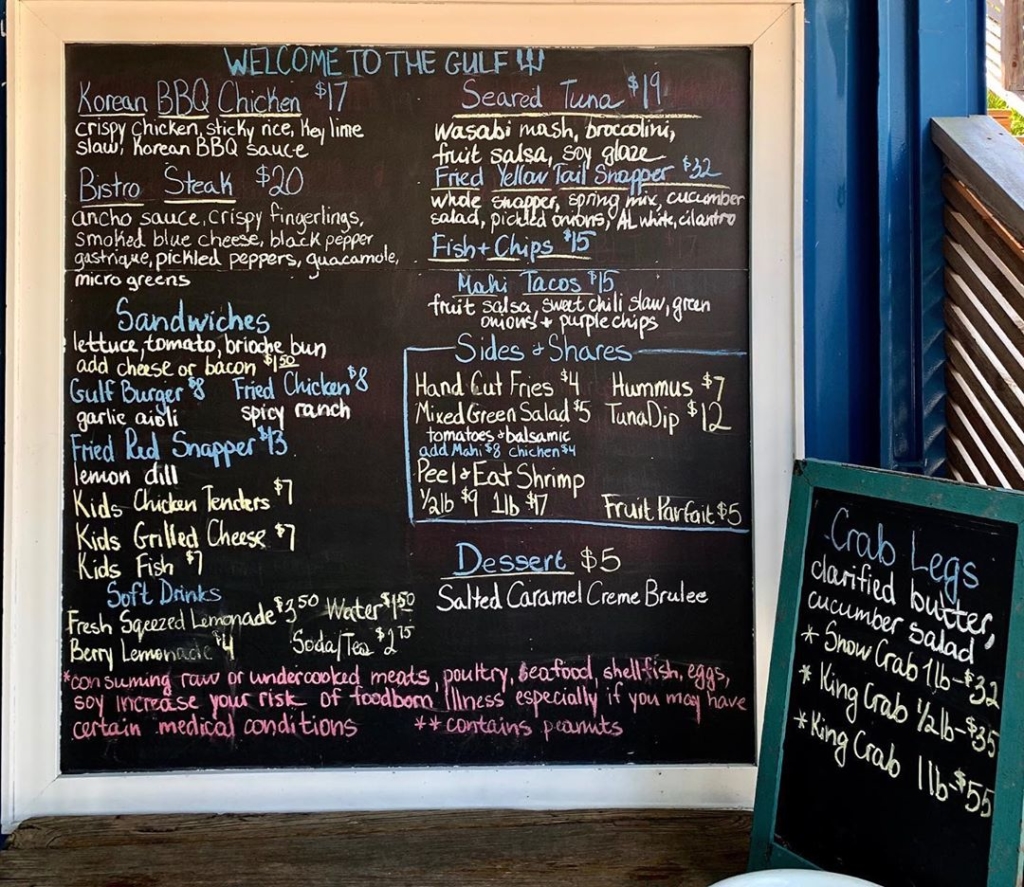 WELCOME TO THE GULF
Korean BBQ Chicken $17
crispy chicken, sticky rice, key lime
slaw, Korean BBQ sauce
Bistro Steak $20
ancho sauce, crispy fingerlings,
smoked blue cheese, black pepper
gastrique, pickled peppers, guacamole,
micro greens
Sandwiches
lettuce, tomato, brioche bun
add cheese or bacon $1.50
Gulf Burger $8 Fried Chicken $8
garlic aioli spicy ranch
Fried Red Snapper $13
lemon dill
Kids Chicken Tenders $7
Kids Grilled Cheese $7
Kids Fish $7
Soft Drinks
Fresh Sqeezed Lemonade $3.50 Water $1.50
Berry Lemonade $4 Soda/Tea $2.75
Seared Tuna $19
wasabi mash, broccolini,
fruit salsa, soy glaze
Fried Yellow Tail Snapper $32
whole snapper, spring mix, cucumber
salad, pickled onions, AL white, cilantro
Fish + Chips $15
Mahi Tacos $15
fruit salsa, sweet chili slaw, green
onions + purple chips
Sides & Shares
Hand Cut Fries $4 Hummus $7
Mixed Green Salad $5 Tuna Dip $12
tomatoes & balsamic
add Mahi $8 chicken $4
Peel & Eat Shrimp
1/2lb $9 1lb $17 Fruit Parfait $5
Dessert $5
Salted Caramel Creme Brulee
*consuming raw or undercooked meats, poultry, seafood, shellfish, eggs,
soy increase your risk of foodborn illness especially if you may have
certain medical conditions **contains peanuts
Crab Legs
clarified butter,
cucumber salad
* Snow Crab 1lb-$32
* King Crab 1/2lb-$35
* King Crab 1lb-$55